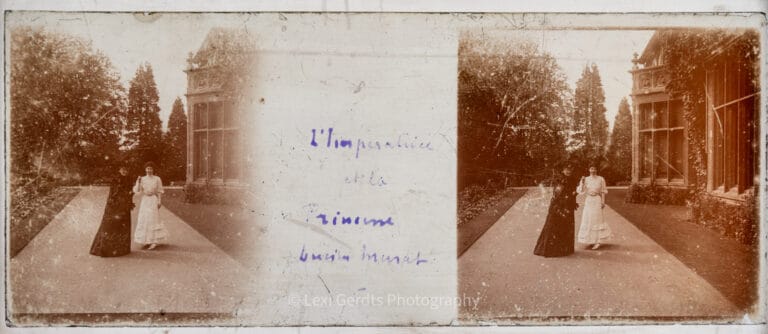 L'Imperatrice
et la
Princesse
Lucien Murat
© Lexi Gerdts Photography